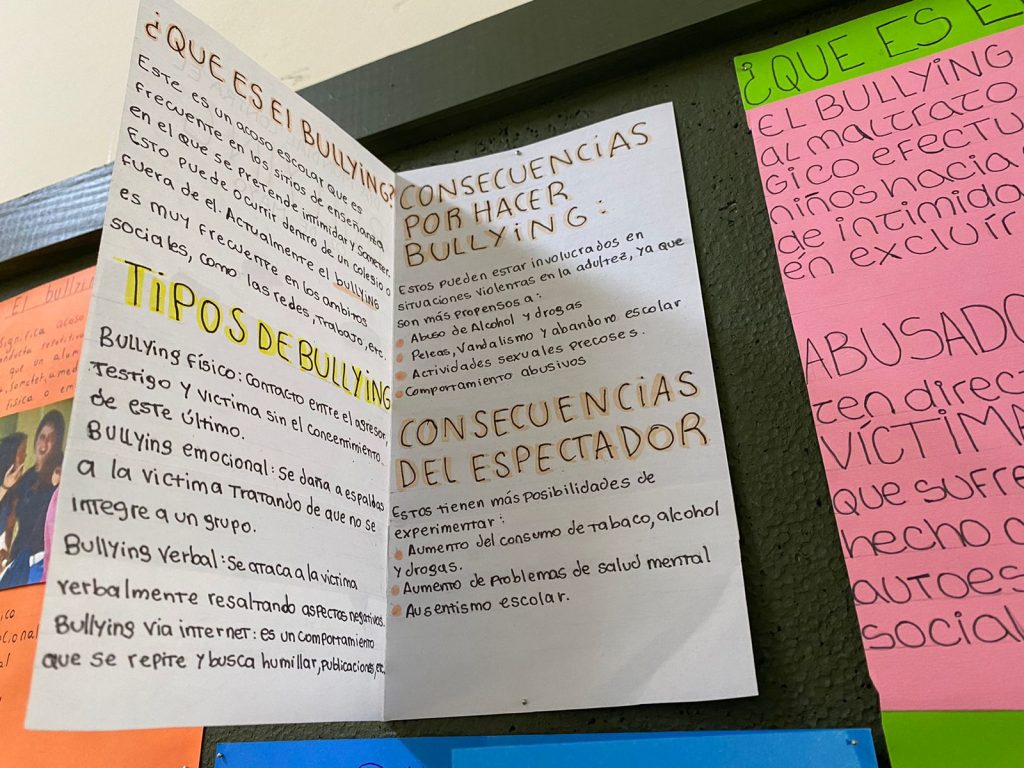 ¿QUE ES El BULLYING?
ESTE ES UN acoso escolar que es
frecuente en los sitios de enseñanza
en el que se pretende intimidar y someter.
Esto puede ocurrir dentro de un colegio o
fuera de el. Actualmente el bullying
es muy frecuente en los ambitos
sociales, como las redes, Trabajo, etc.
TiPOS DE BULLYING
BULLYing físico: contacto entre el agresor
Testigo y victima sin el concentimiento
de este último.
BULLYing emocional: se daña a espaldas
a la victima tratando de que no se
integre a un grupo.
Bullying verbal: se ataca a la victima
verbalmente resaltando aspectos negativos.
Bullying via internet: es un comportamiento
que se repite y busca humillar, publicaciones, etc.
CONSECUENCIAS
POR HACER
BULLYiNG:
Estos pueden estar involucrados en
situaciones violentas en la adultez, ya que
son más propensos a:
Abuso de Alcohol y drogas
Peleas, Vandalismo y abandono escolar
Actividades sexuales precoses.
Comportamiento abusivos
CONSECUENCIAS
DEL ESPECTADOR
Estos tienen más posibilidades de
experimentar:
Aumento del consumo de tabaco, alcohol
y drogas.
Aumento de problemas de salud mental
Ausentismo escolar.
¿QUE ES E
EL BULLYING
AL MALTRATO
GICO EFECTU
niños hacia
de intimida
en excluir
ABUSADO
ten direct
VÍCTIMA
que sufre
hecho
autoes
social
El bullyin
significa acoso
que un alum
física o em
ico
cional
al